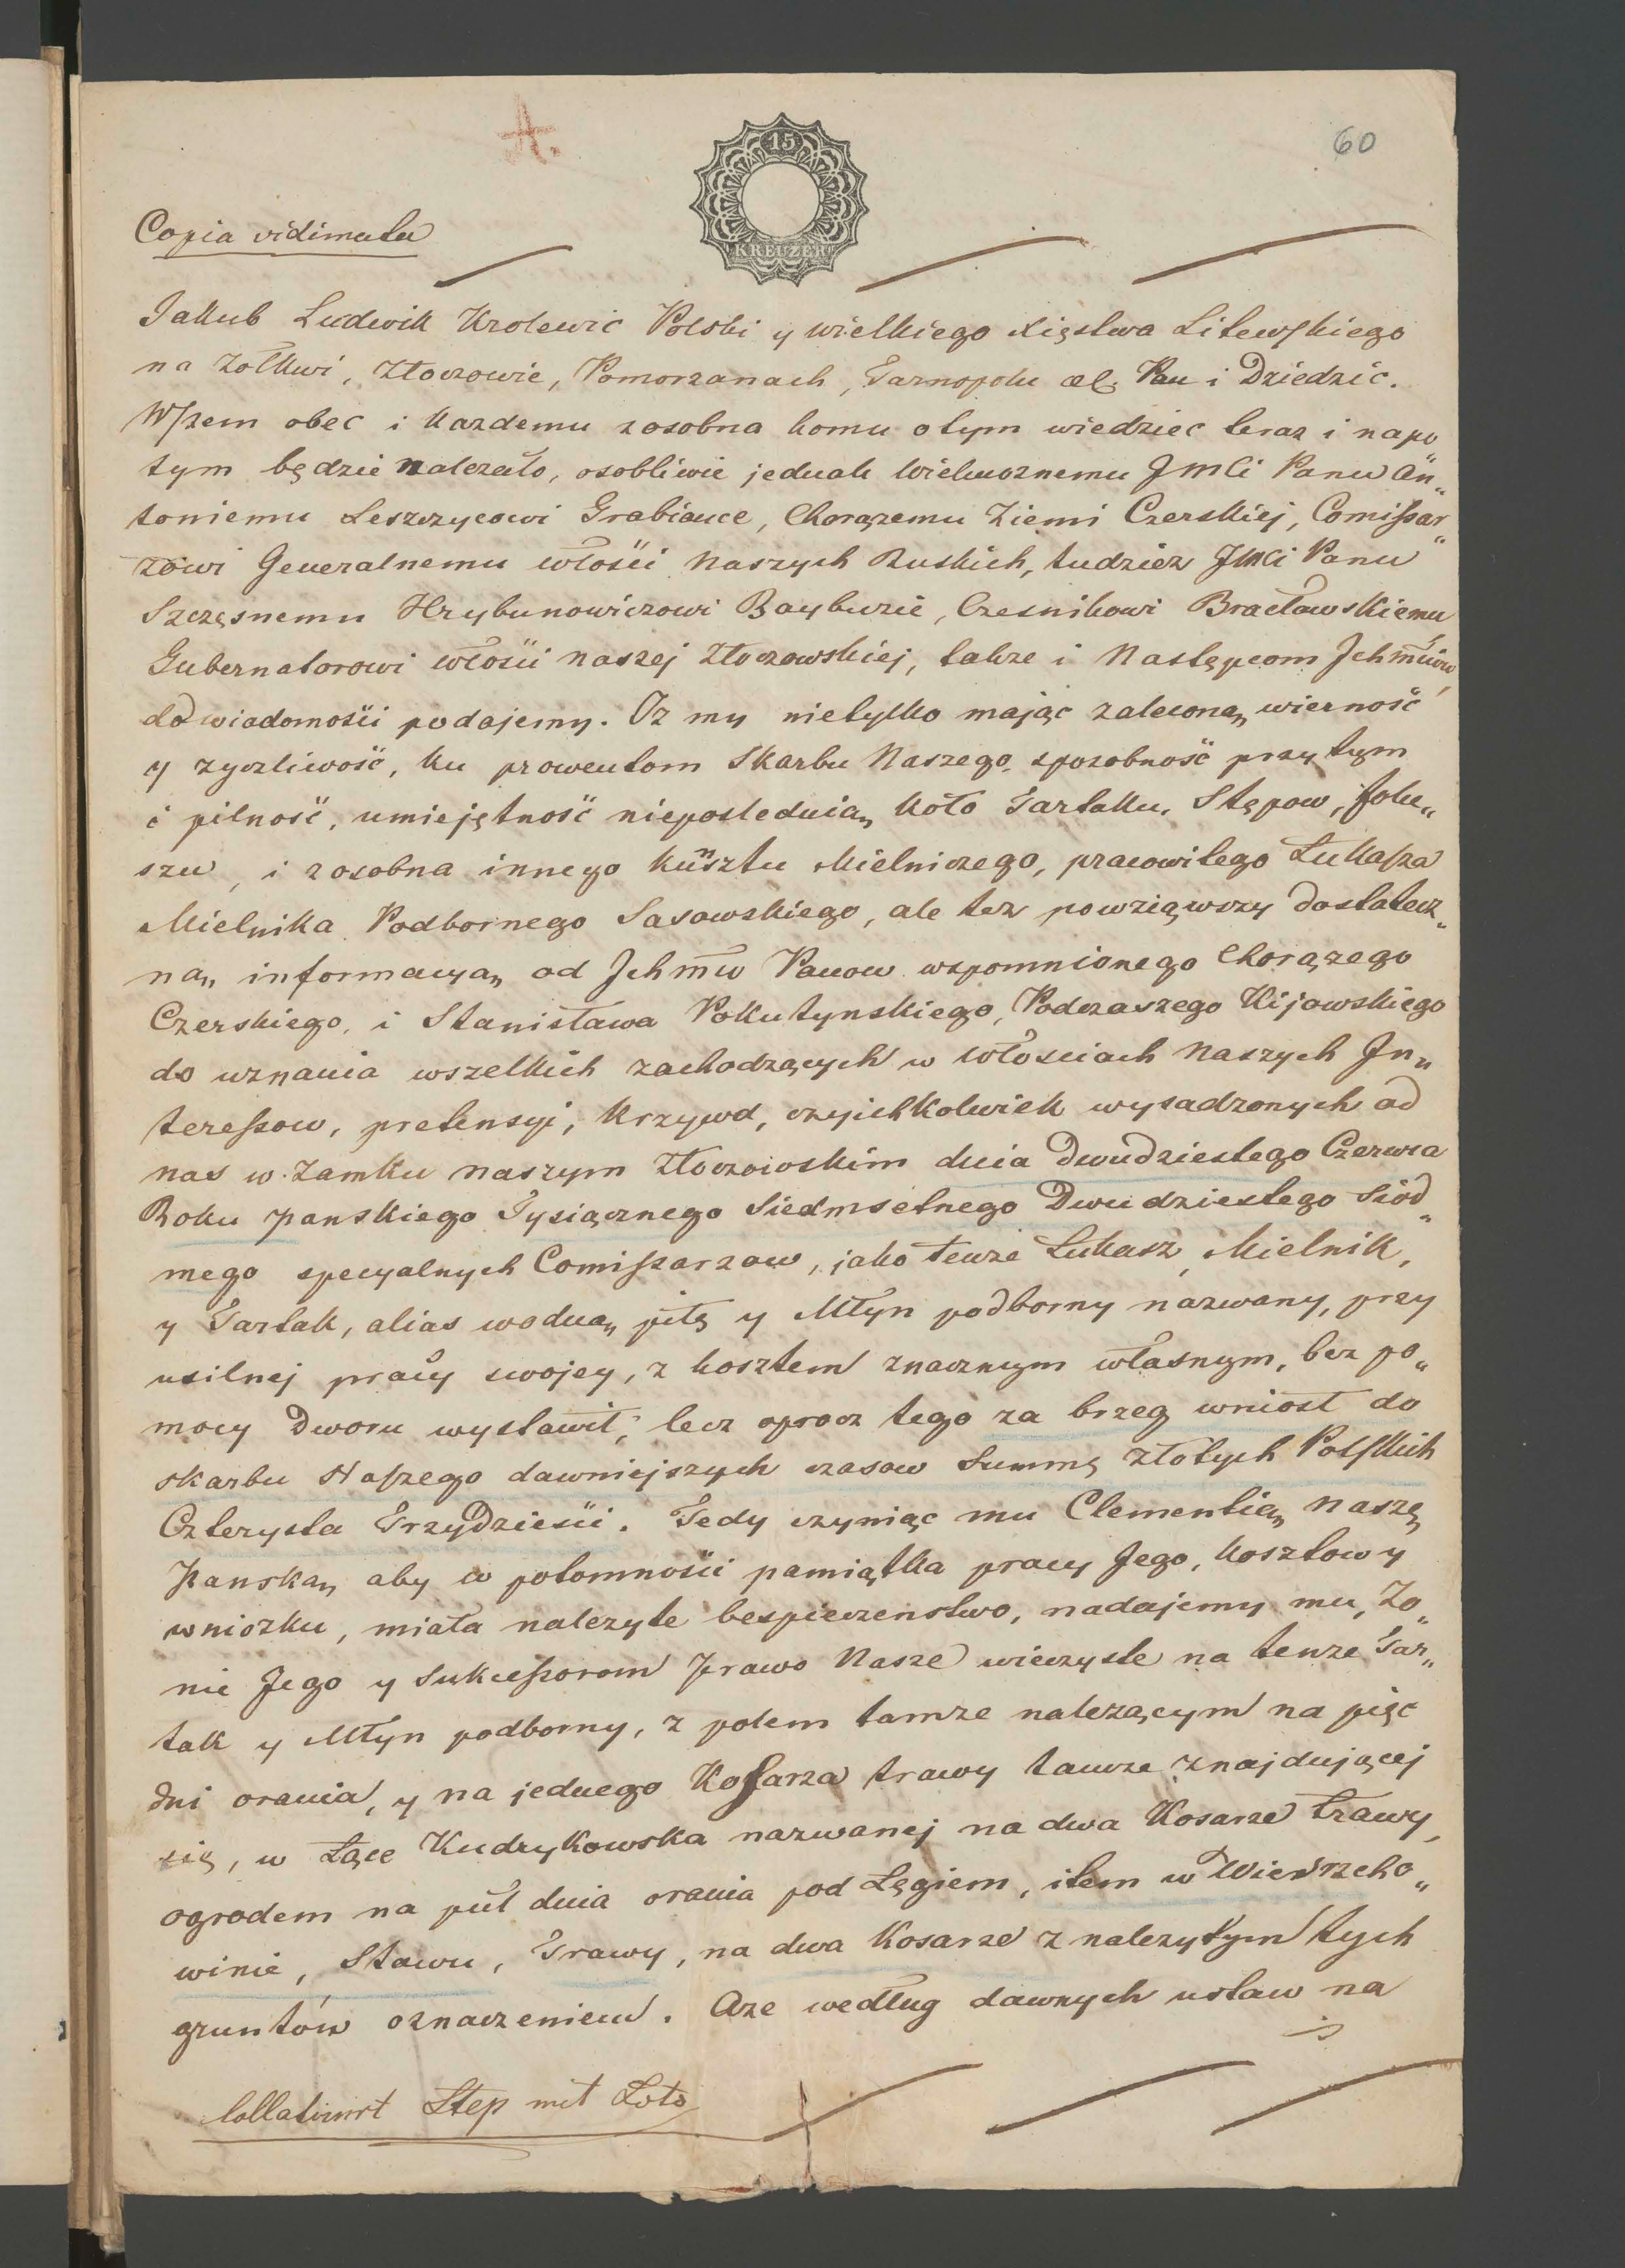 A.
60
15
KREUZER
Copia vidimata
Jakub Ludwik Krolewic Polski y wielkiego xięstwa Litewskiego
na Zołkwi, Złoczowie, Pomorzanach, Tarnopolu &c. Pan i Dziedzic.
Wszem obec i kazdemu zosobna komu otym wiedziec teraz i napo
tym będzie nalezało, osobliwie jednak Wielmoznemu JMCi Panu An„
toniemu Leszczycowi Grabiance, Chorązemu Ziemi Czerskiej, Comissar„
zowi Generalnemu włosći Naszych Ruskich, tudziez JMCi Panu
Szczęsnemu Hrybunowiczowi Bayburzie, Czesnikowi Bracławskiemu
Gubernatorowi włosći naszej Złoczowskiej, takze i Następcom Jchmćiów
do wiadomosći podajemy. Iz my nietylko mając zaleconą„ wierność
y zyczliwość, ku prowentom Skarbu Naszego, sposobność przytym
i pilność, umiejętność nieposlednią„ koło Tartaku, Stępow, folu„
szu, i zosobna innego kunsztu Mielniczego, pracowitego Łukasza
Mielnika Podbornego Sasowskiego, ale tez powziąwszy dostatecz„
ną„ informacyą„ od Jchmćw Panow wspomnionego Chorązego
Czerskiego, i Stanisława Pokutynskiego, Podczaszego Kijowskiego
do uznania wszelkich zachodzących w włosciach Naszych In„
teressow, pretensyi, krzywd, czyichkolwiek wysadzonych od
nas w Zamku naszym Złoczowskim dnia Dwudziestego Czerwca
Roku panskiego Tysiącznego Siedmsetnego Dwudziestego Siód„
mego specyalnych Comissarzow, jako tenze Łukasz, Mielnik,
y Tartak, alias wodną„ piłę y Młyn podborny nazwany, przy
usilnej pracy swojey, z kosztem znacznym własnym, bez po„
mocy Dworu wystawił, lecz oprocz tego za brzeg wniosł do
skarbu Naszego dawniejszych czasow Summę złotych Polskich
Czterysta Trzydziesći. Tedy czyniąc mu Clementią„ Naszę„
Panską„ aby w potomnosći pamiątka pracy Jego, kosztow y
wniozku, miała nalezyte bespieczenstwo, nadajemy mu, Zo„
nie Jego y Sukcessorom prawo Nasze wieczyste na tenze Tar„
tak y Młyn podborny, z polem tamze nalezącym na pięc
dni orania, y na jednego Kosarza trawy tamze znajdującej
się, w Łące Kudrykowska nazwanej na dwa Kosarze trawy,
ogrodem na puł dnia orania pod Łęgiem, item w Wierzcho„
winie, Stawu, Trawy, na dwa Kosarze z nalezytym tych
gruntów oznaczeniem. Aze według dawnych ustaw na
Collationirt Step mit Loto